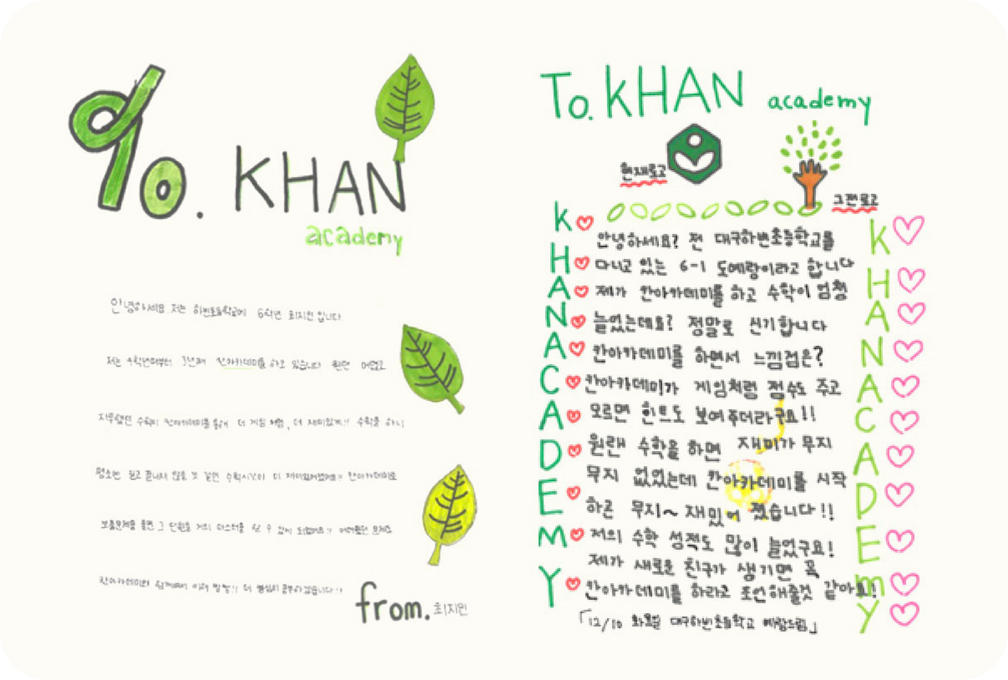 To. KHAN
academy
안녕하세요 저는 하빈초등학교에 6학년 최지민입니다
저는 4학년때부터 3년째 칸아카데미를 하고 있습니다 원래 어렵고
수학이 칸아카데미를 통해 더 게임처럼, 더 재미있게!! 수학을 하니
평소엔 길고 끝나지 않을 것 같던 수학시간이 더 재미있어졌어요!! 칸아카데미로
문제를 풀면 그 단원을 거의 마스터를 할 수 있게 되었어요!! 어려웠던 문제도
칸아카데미와 함께 더 열심히 공부하겠습니다!!
from. 최지민
To. KHAN academy
현재로고
그전로고
KHAN ACADEMY
안녕하세요? 전 대구하빈초등학교를
다니고 있는 6-1 도예랑이라고 합니다
제가 칸아카데미를 하고 수학이 엄청
늘었는데요? 정말로 신기합니다
칸아카데미를 하면서 느낌점은?
칸아카데미가 게임처럼 점수도 주고
모르면 힌트도 보여주더라구요!!
원랜 수학을 하면 재미가 무지
무지 없었는데 칸아카데미를 시작
하곤 무지~ 재밌어 졌습니다!!
저의 수학 성적도 많이 늘었구요!
제가 새로운 친구가 생기면 꼭
칸아카데미를 하라고 조언해줄것 같아요!
「12/10 화요일 대구하빈초등학교 예랑드림」
KHAN ACADEMY